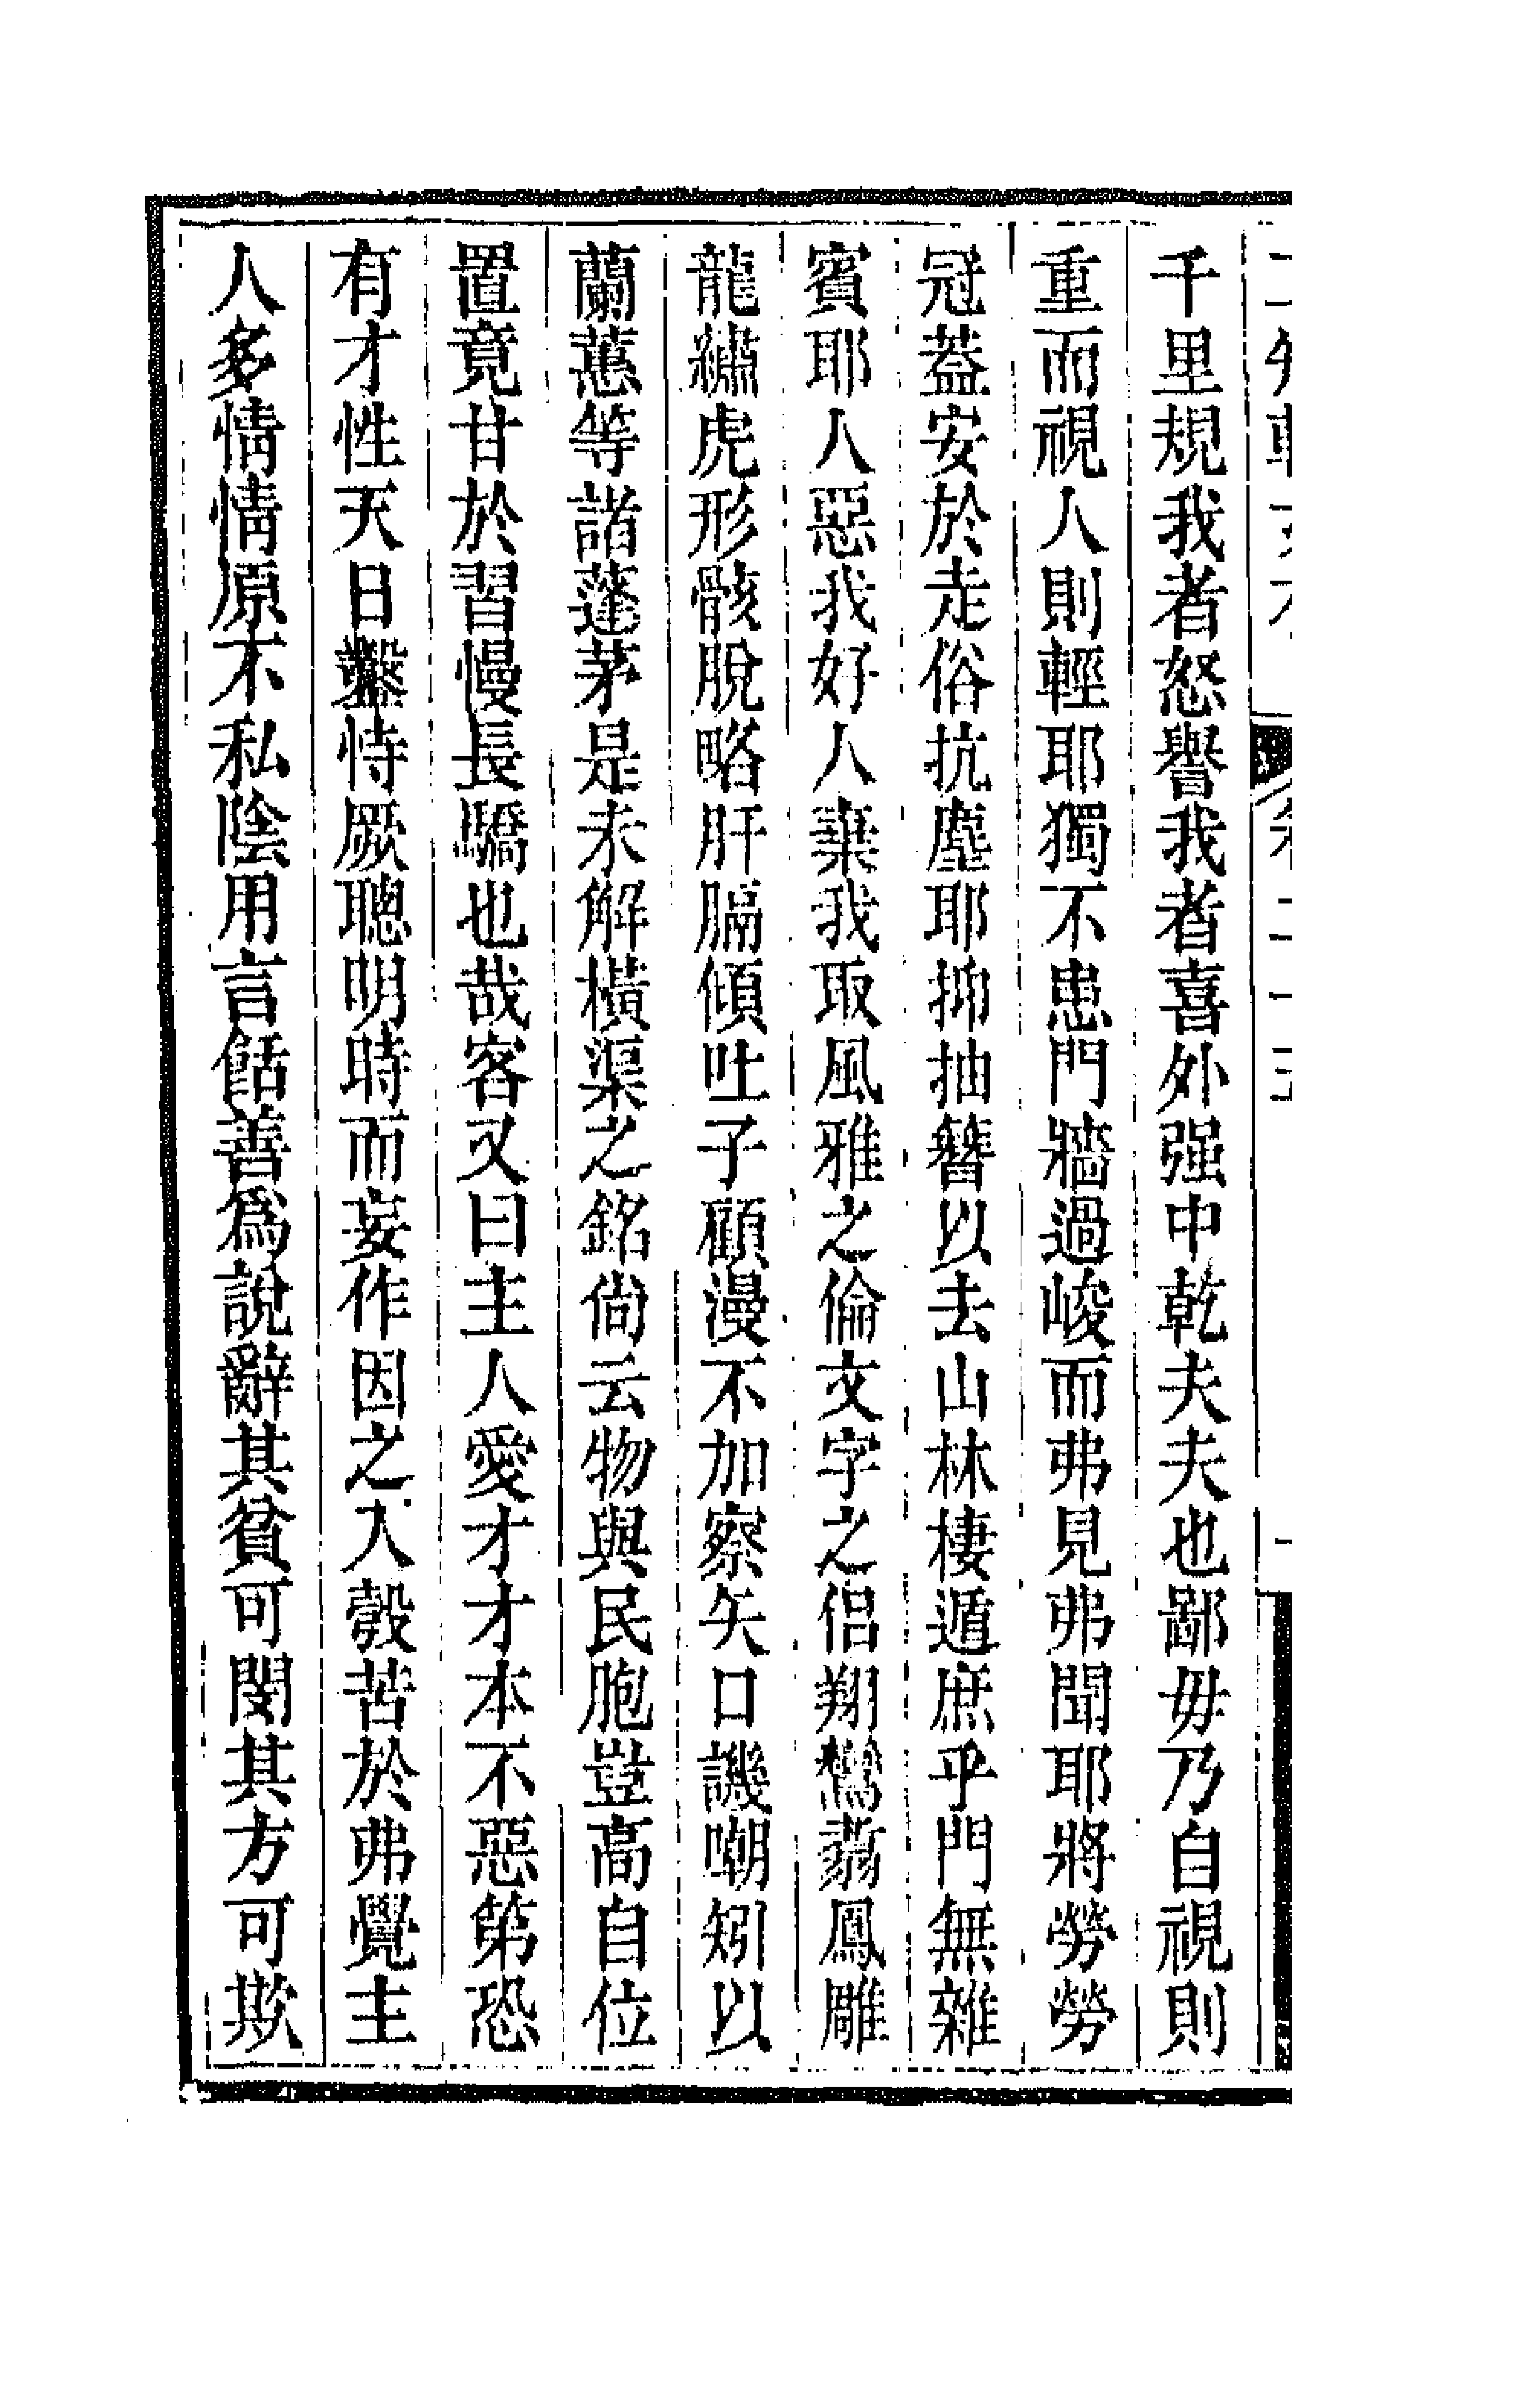 千里規我者怒譽我者喜外强中乾夫夫也鄙毋乃自視則
重而視人則輕耶獨不患門牆過峻而弗見弗聞耶將勞勞
冠蓋安於走俗抗塵耶抑抽簪以去山林棲遁庶乎門無雜
賓耶人惡我好人棄我取風雅之倫文字之侶翔鸞翥鳳雕
龍繡虎形骸脫略肝膈傾吐子顧漫不加察矢口譏嘲矧以
蘭蕙等諸蓬茅是未解橫渠之銘尙云物與民胞豈高自位
置竟甘於習慢長驕也哉客又曰主人愛才才本不惡第恐
有才性天日鑿恃厥聰明時而妄作因之入彀苦於弗覺主
人多情情原不私陰用言餂善爲說辭其貧可閔其方可欺